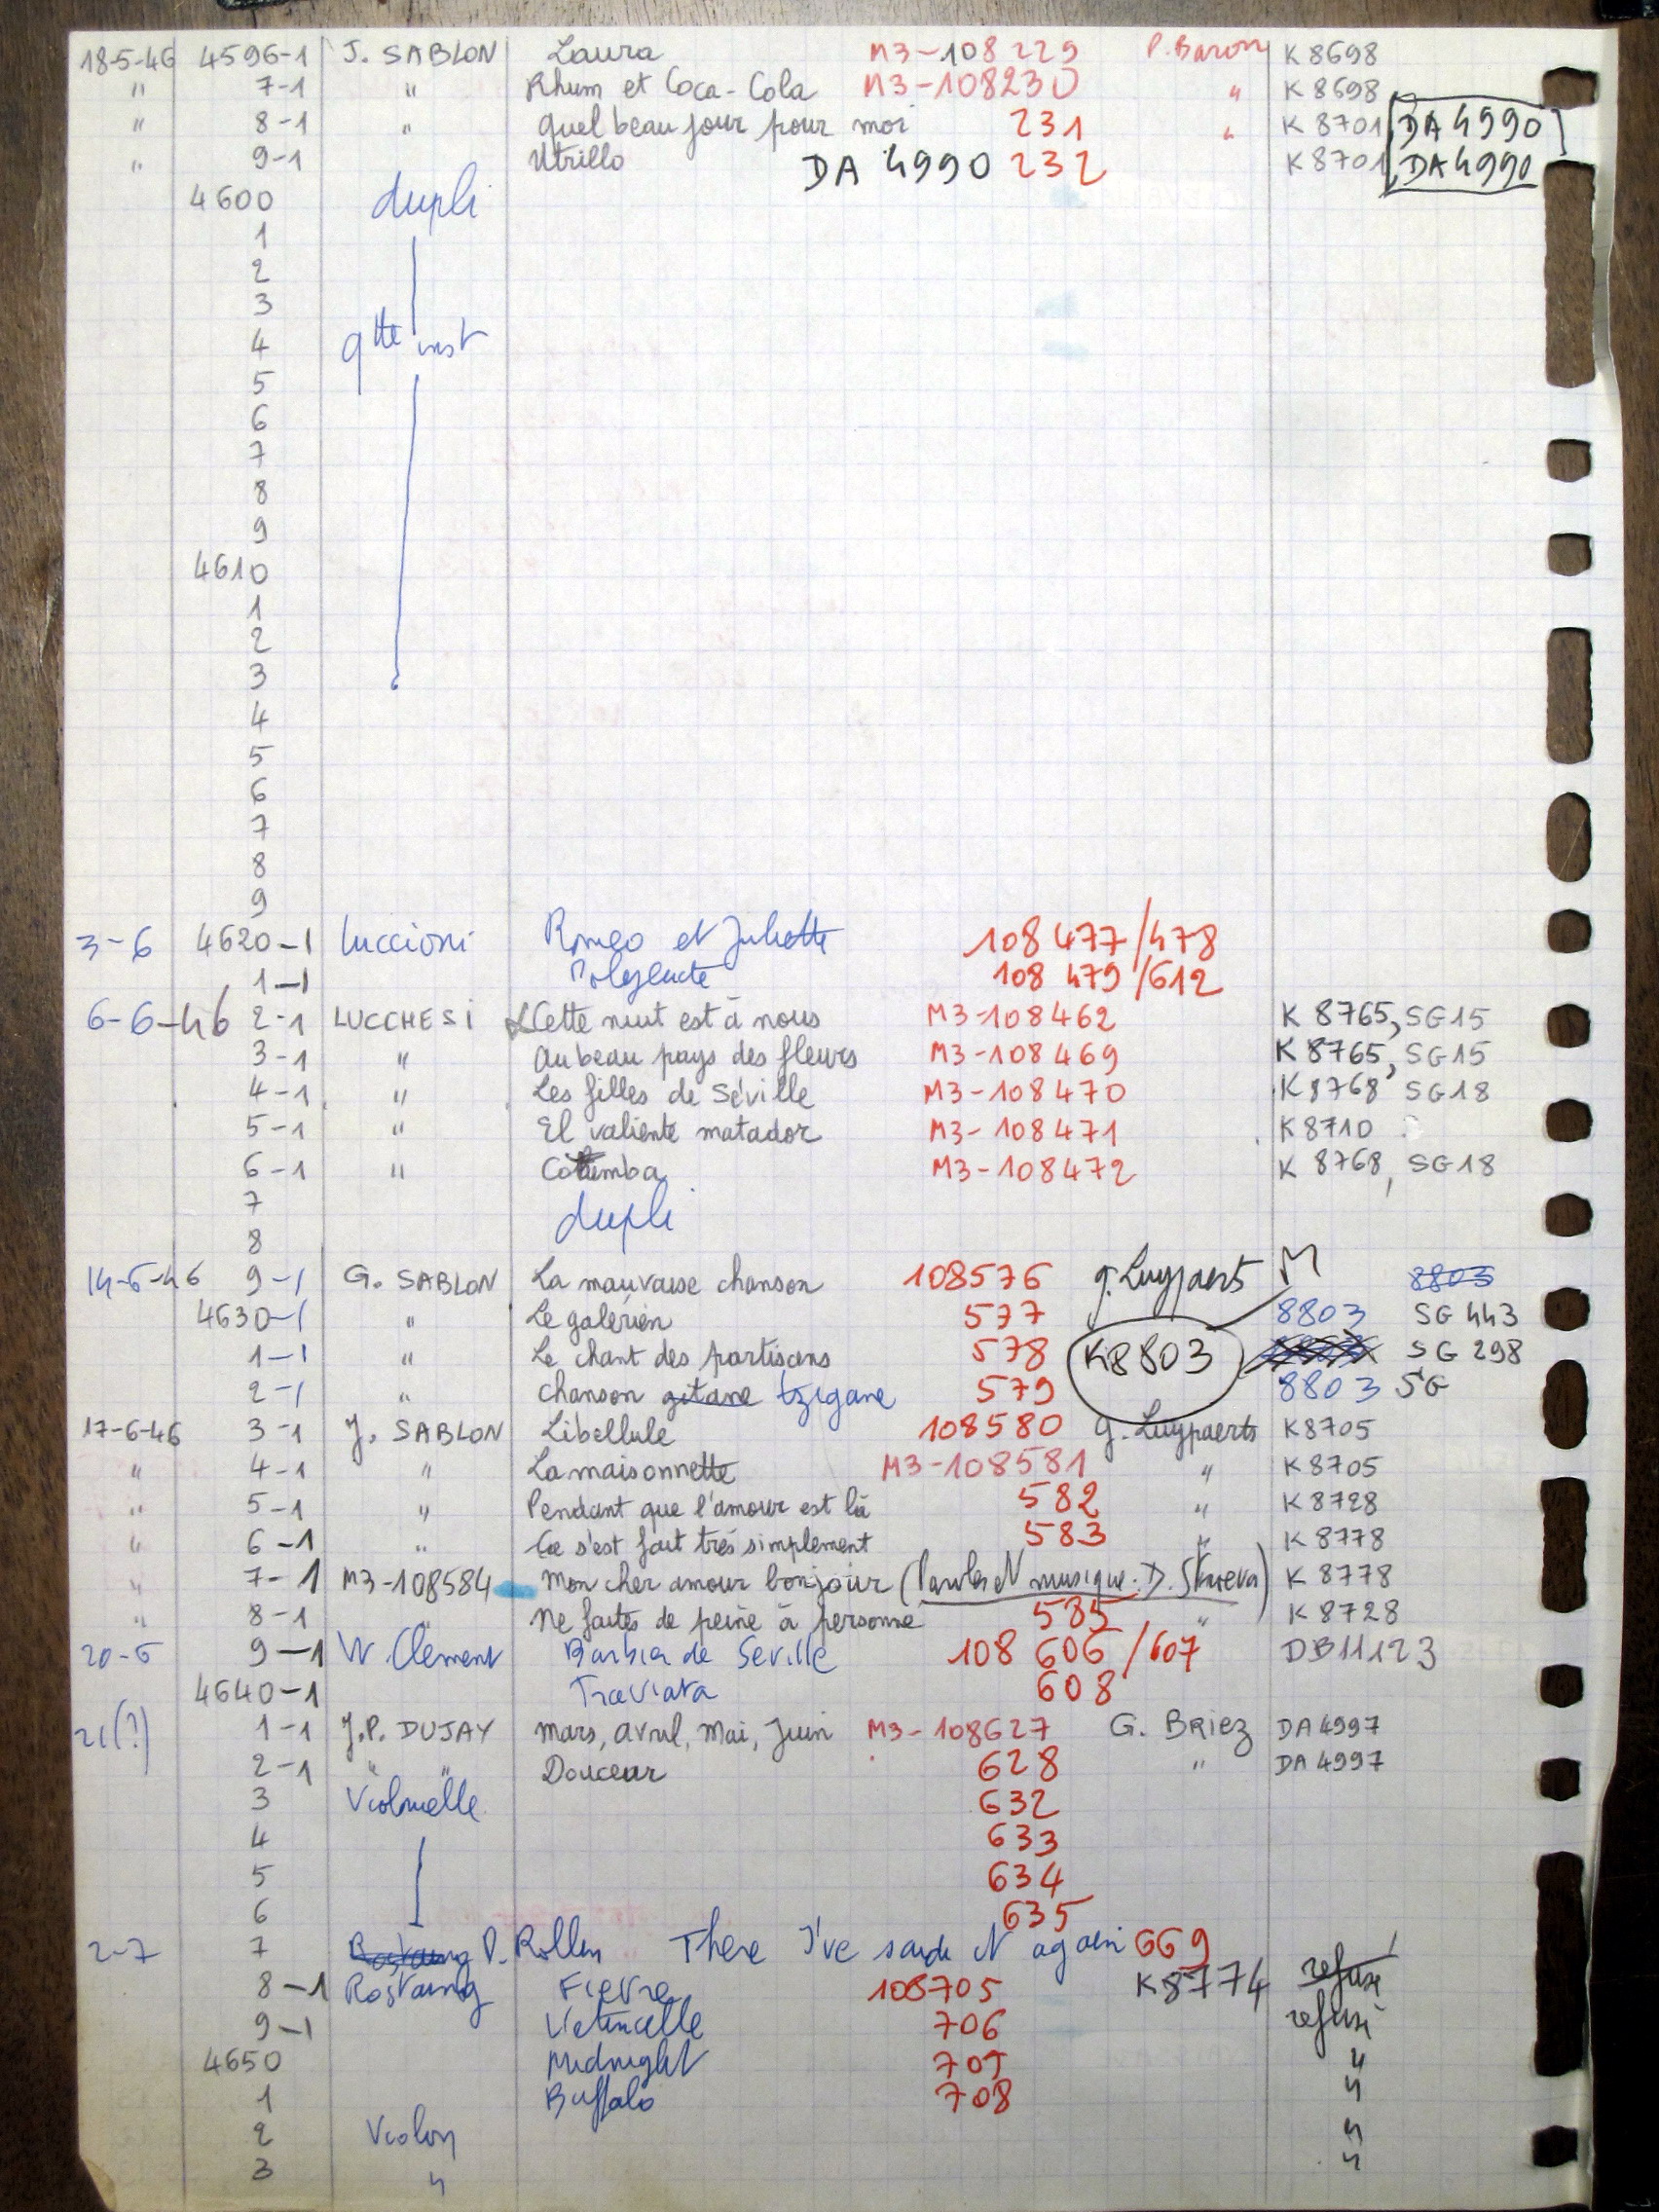 18-5-46 4596-1 J. SABLON Laura M3-108229 P. Baron K 8698
" 7-1 " Rhum et Coca-Cola M3-108230 " K 8698
" 8-1 " Quel beau jour pour moi 231 " K 8701 DA 4990
" 9-1 Utrillo DA 4990 232 K 8701 DA 4990
4600 dupli
1
2
3
4 qtte inst
5
6
7
8
9
4610
1
2
3
4
5
6
7
8
9
3-6 4620-1 Luccioni Romeo et Juliette 108 477/478
1-1 108 479/612
6-6-46 2-1 LUCCHESI Cette nuit est à nous M3-108462 K 8765, SG15
3-1 " Au beau pays des fleurs M3-108469 K 8765, SG15
4-1 " Les filles de Séville M3-108470 K 8768 SG18
5-1 " El valiente matador M3-108471 K 8710
6-1 " M3-108472 K 8768, SG18
7 dupli
8
14-6-46 9-1 G. SABLON La mauvaise chanson 108576 G. Luypaerts M 8803
4630-1 " Le galérien 577 8803 SG 443
1-1 " Le chant des partisans 578 K8803 SG 298
2-1 " Chanson gitane tzigane 579 8803 SG
17-6-46 3-1 J. SABLON Libellule 108580 G. Luypaerts K8705
" 4-1 " La maisonnette M3-108581 " K 8705
" 5-1 " Pendant que l'amour est là 582 " K 8728
" 6-1 " Ça s'est fait très simplement 583 " K 8778
" 7-1 M3-108584 Mon cher amour bonjour (Paroles et musique. D. ) K 8778
" 8-1 " Ne faites de peine à personne 585 " K 8728
20-6 9-1 W. Clément Barbier de Séville 108 606/607 DB11123
4640-1 Traviata 608
21(?) 1-1 J.P. DUJAY Mars, Avril, Mai, Juin M3-108627 G. BRIEZ DA 4997
2-1 " " Douceur 628 " DA 4997
3 Violoncelle 632
4 633
5 634
6 635
2-7 7 Rostaing D. Rollin There I've saide it again 669
8-1 Rostaing Fièvre 108705 K8774 refusé
9-1 706 refusé
4650 Midnight 707 "
1 Buffalo 708 "
2 Violon "
3 " "